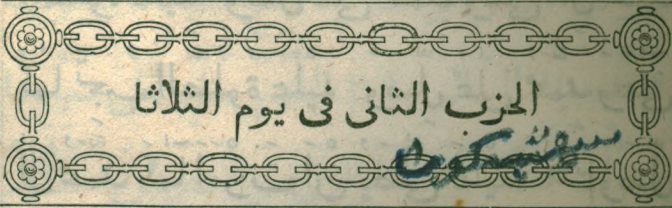 الحزب الثانى فى يوم الثلاثا